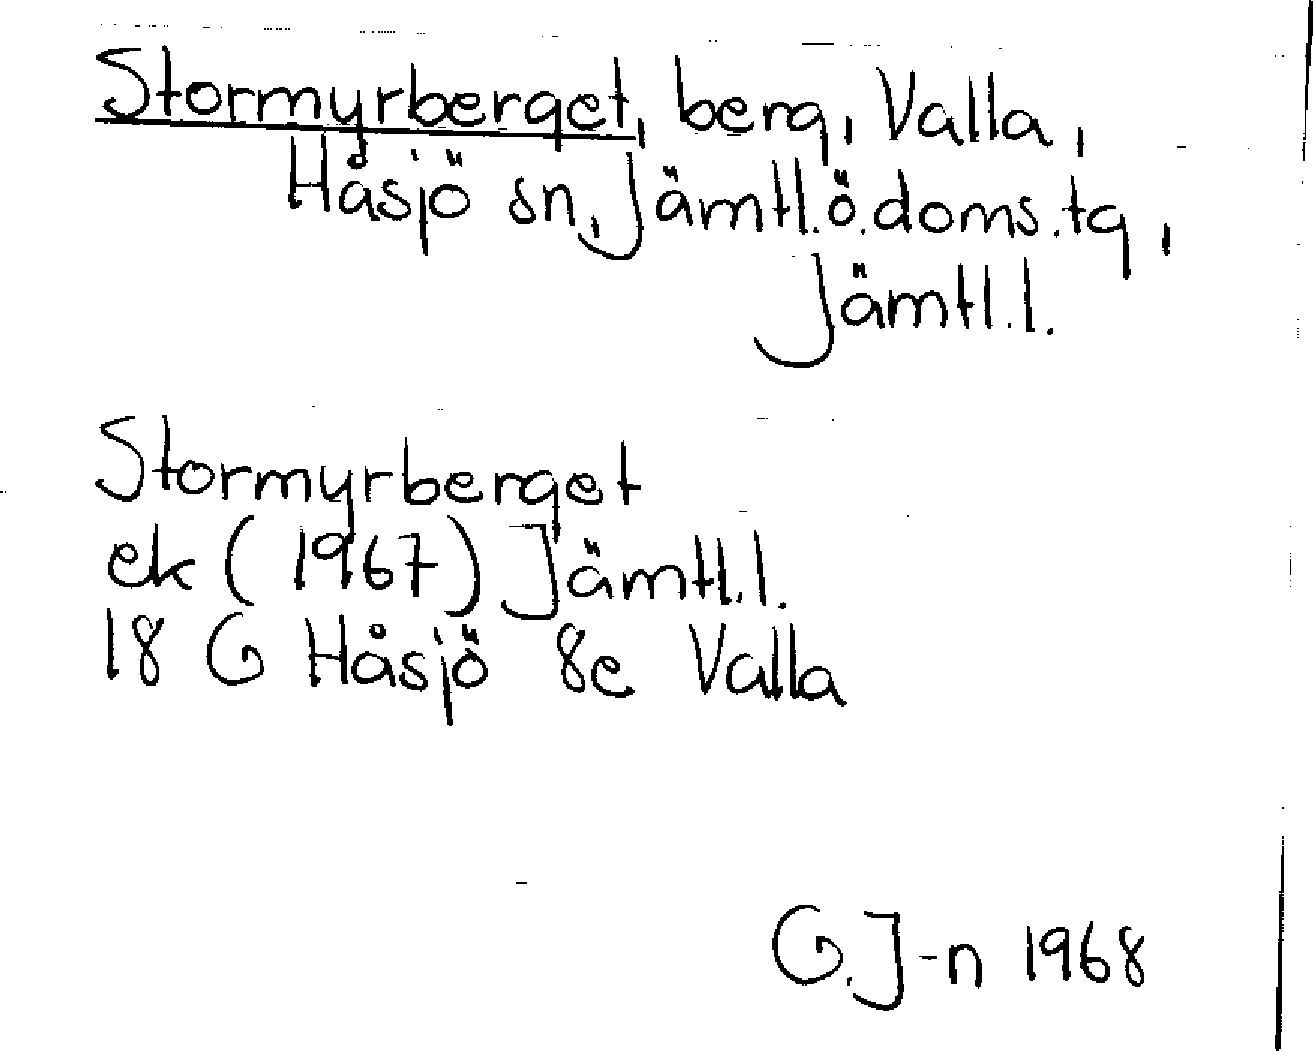 Stormyrberget, berg, Valla,
Håsjö sn, Jämtl.ö.doms.tg,
Jämtl.l.
Stormyrberget
ek (1967) Jämtl.l.
18 G Håsjö 8e Valla
G.J-n 1968